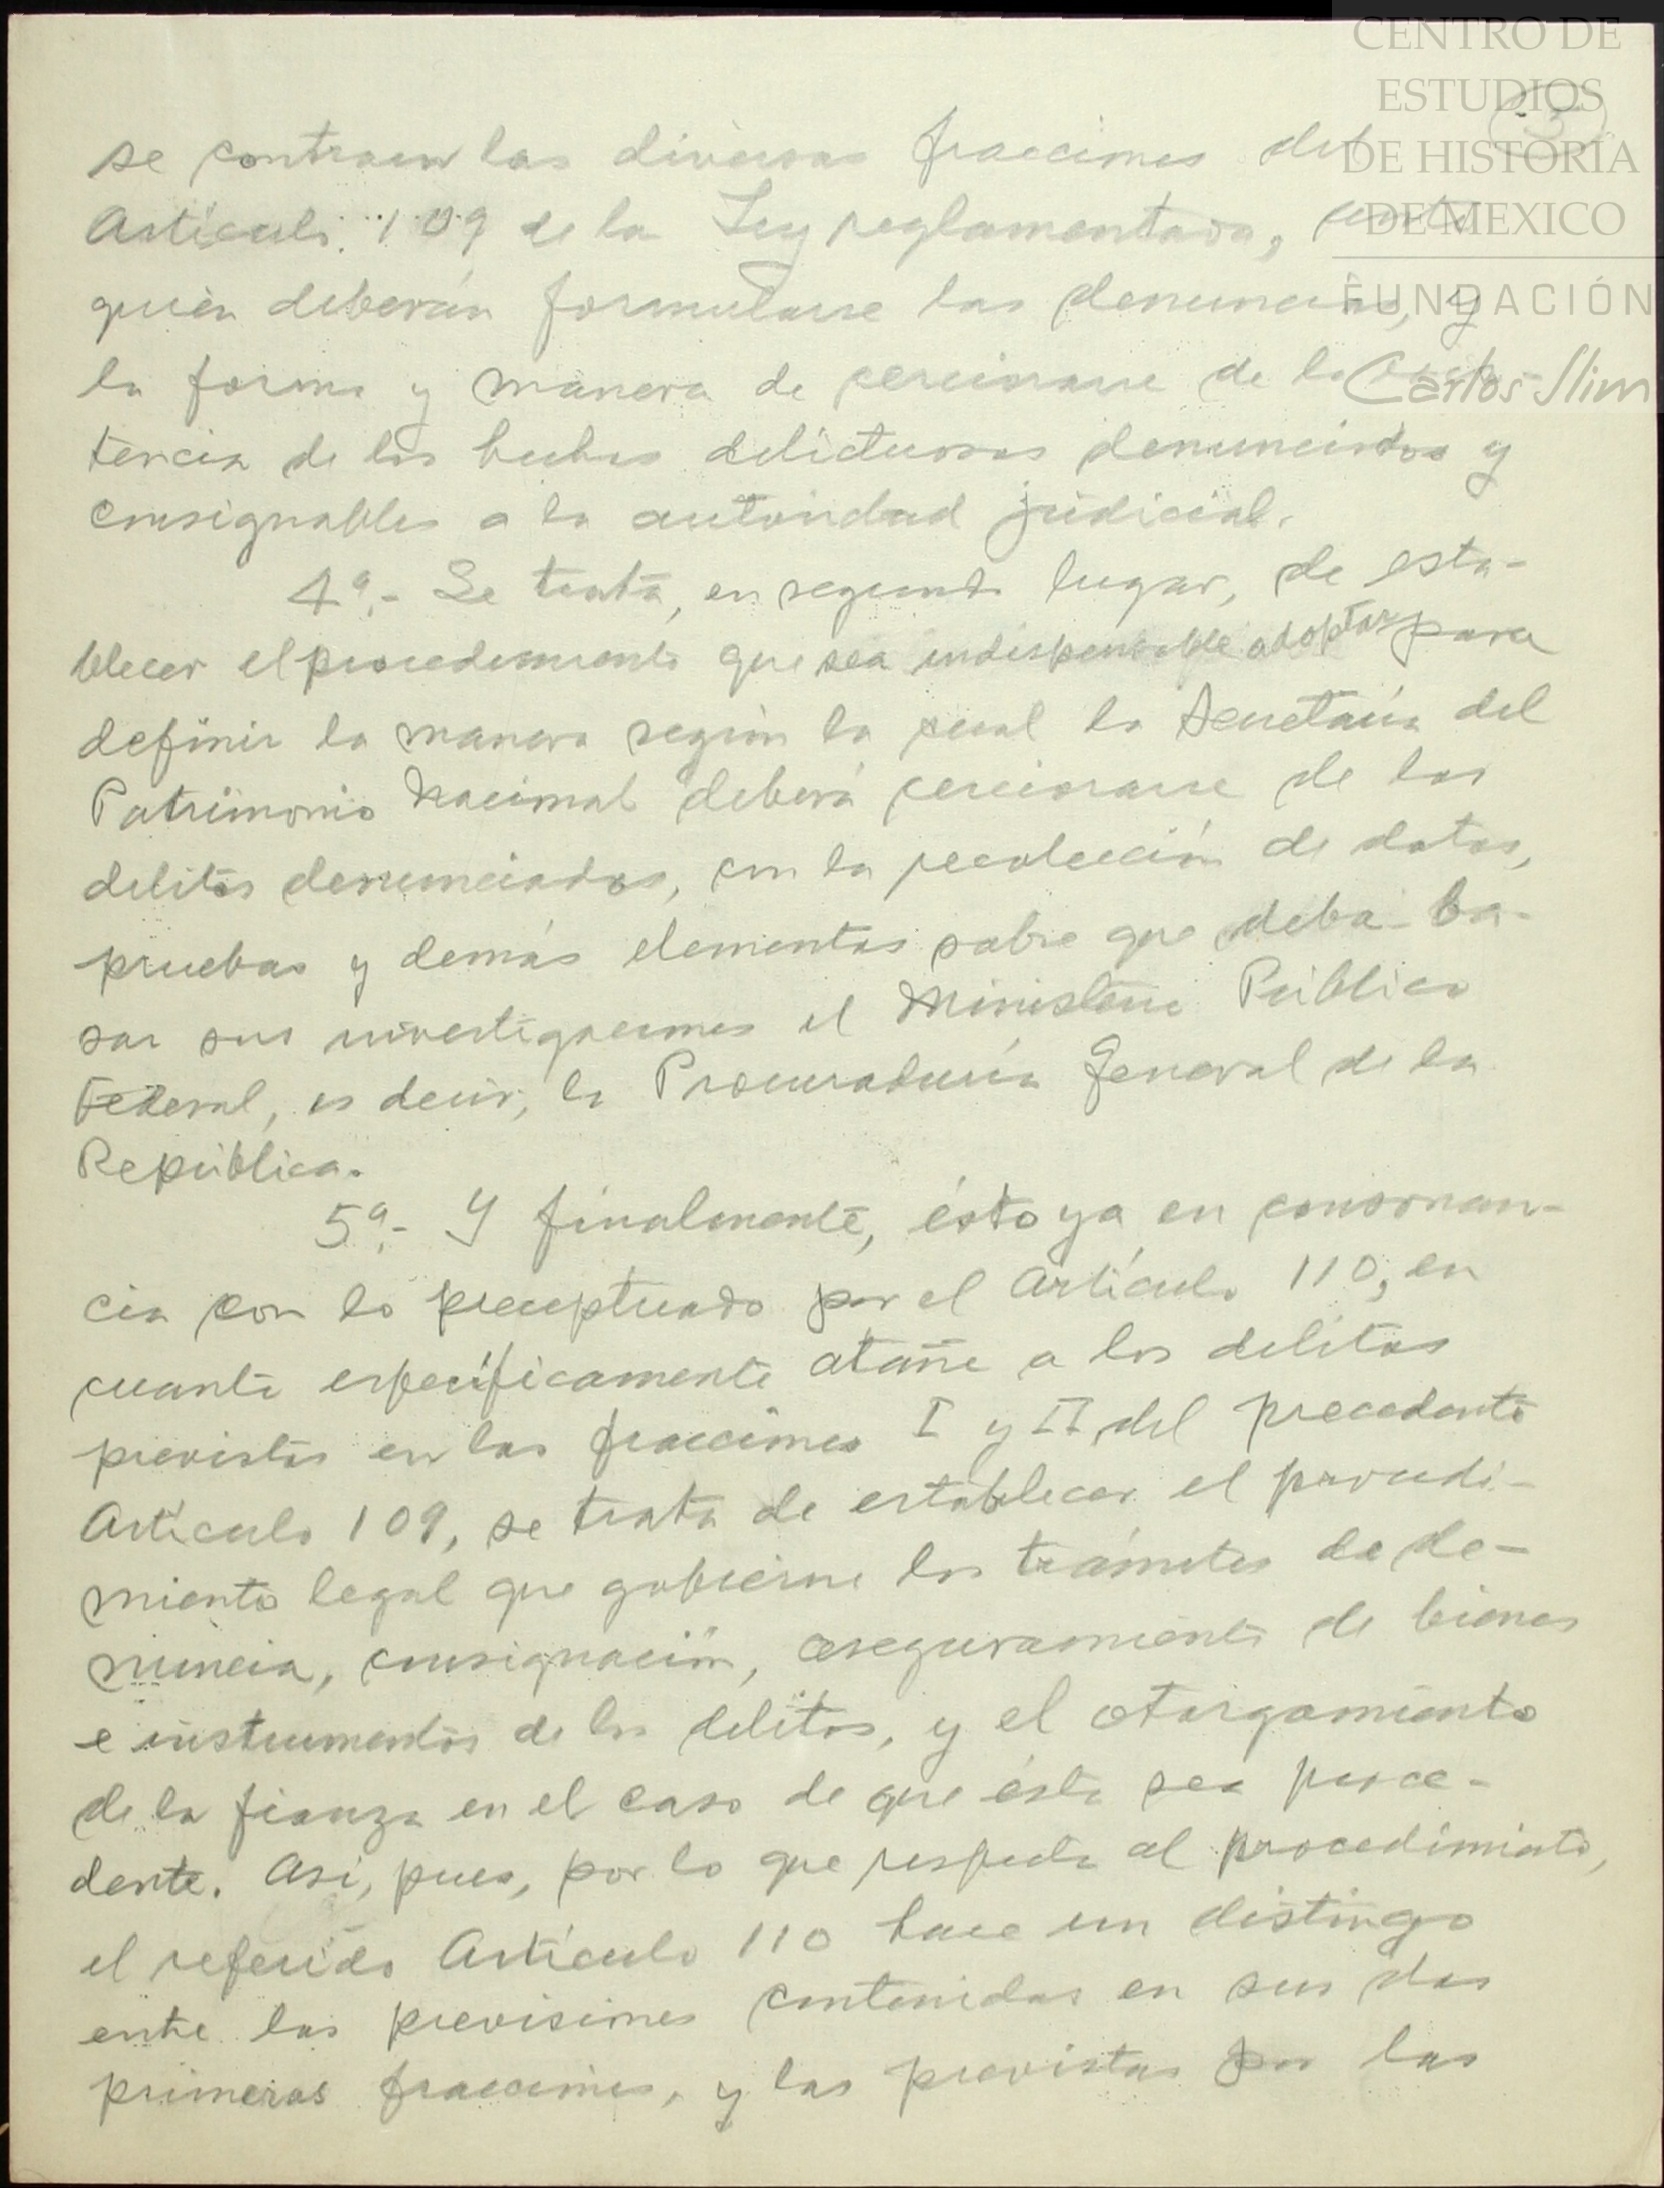 CENTRO DE
ESTUDIOS
DE HISTORIA
DE MEXICO
FUNDACIÓN
Carlos Slim
3
se contraen las diversas fracciones del
Artículo 109 de la Ley reglamentada, ante
quién deberán formularse las denuncias, y
la forma y manera de cerciorarse de la exis-
tencia de los hechos delictuosos denunciados y
consignables a la autoridad judicial.
4a.- Se trata, en segundo lugar, de esta-
blecer el procedimiento que sea indispensable adoptar para
definir la manera según la cual la Secretaría del
Patrimonio Nacional deberá cerciorarse de los
delitos denunciados, con la recolección de datos,
pruebas y demás elementos sobre que deba ba-
sar sus investigaciones el Ministerio Público
Federal, es decir, la Procuraduría General de la
República.
5a.- Y finalmente, ésto ya en consonan-
cia con lo preceptuado por el Artículo 110, en
cuanto específicamente atañe a los delitos
previstos en las fracciones I y II del precedente
Artículo 109, se trata de establecer el procedi-
miento legal que gobierne los trámites de de-
nuncia, consignación, aseguramiento de bienes
e instrumentos de los delitos, y el otorgamiento
de la fianza en el caso de que ésta sea proce-
dente. Así, pues, por lo que respecta al procedimiento,
el referido Artículo 110 hace un distingo
entre las previsiones contenidas en sus dos
primeras fracciones, y las previstas por las